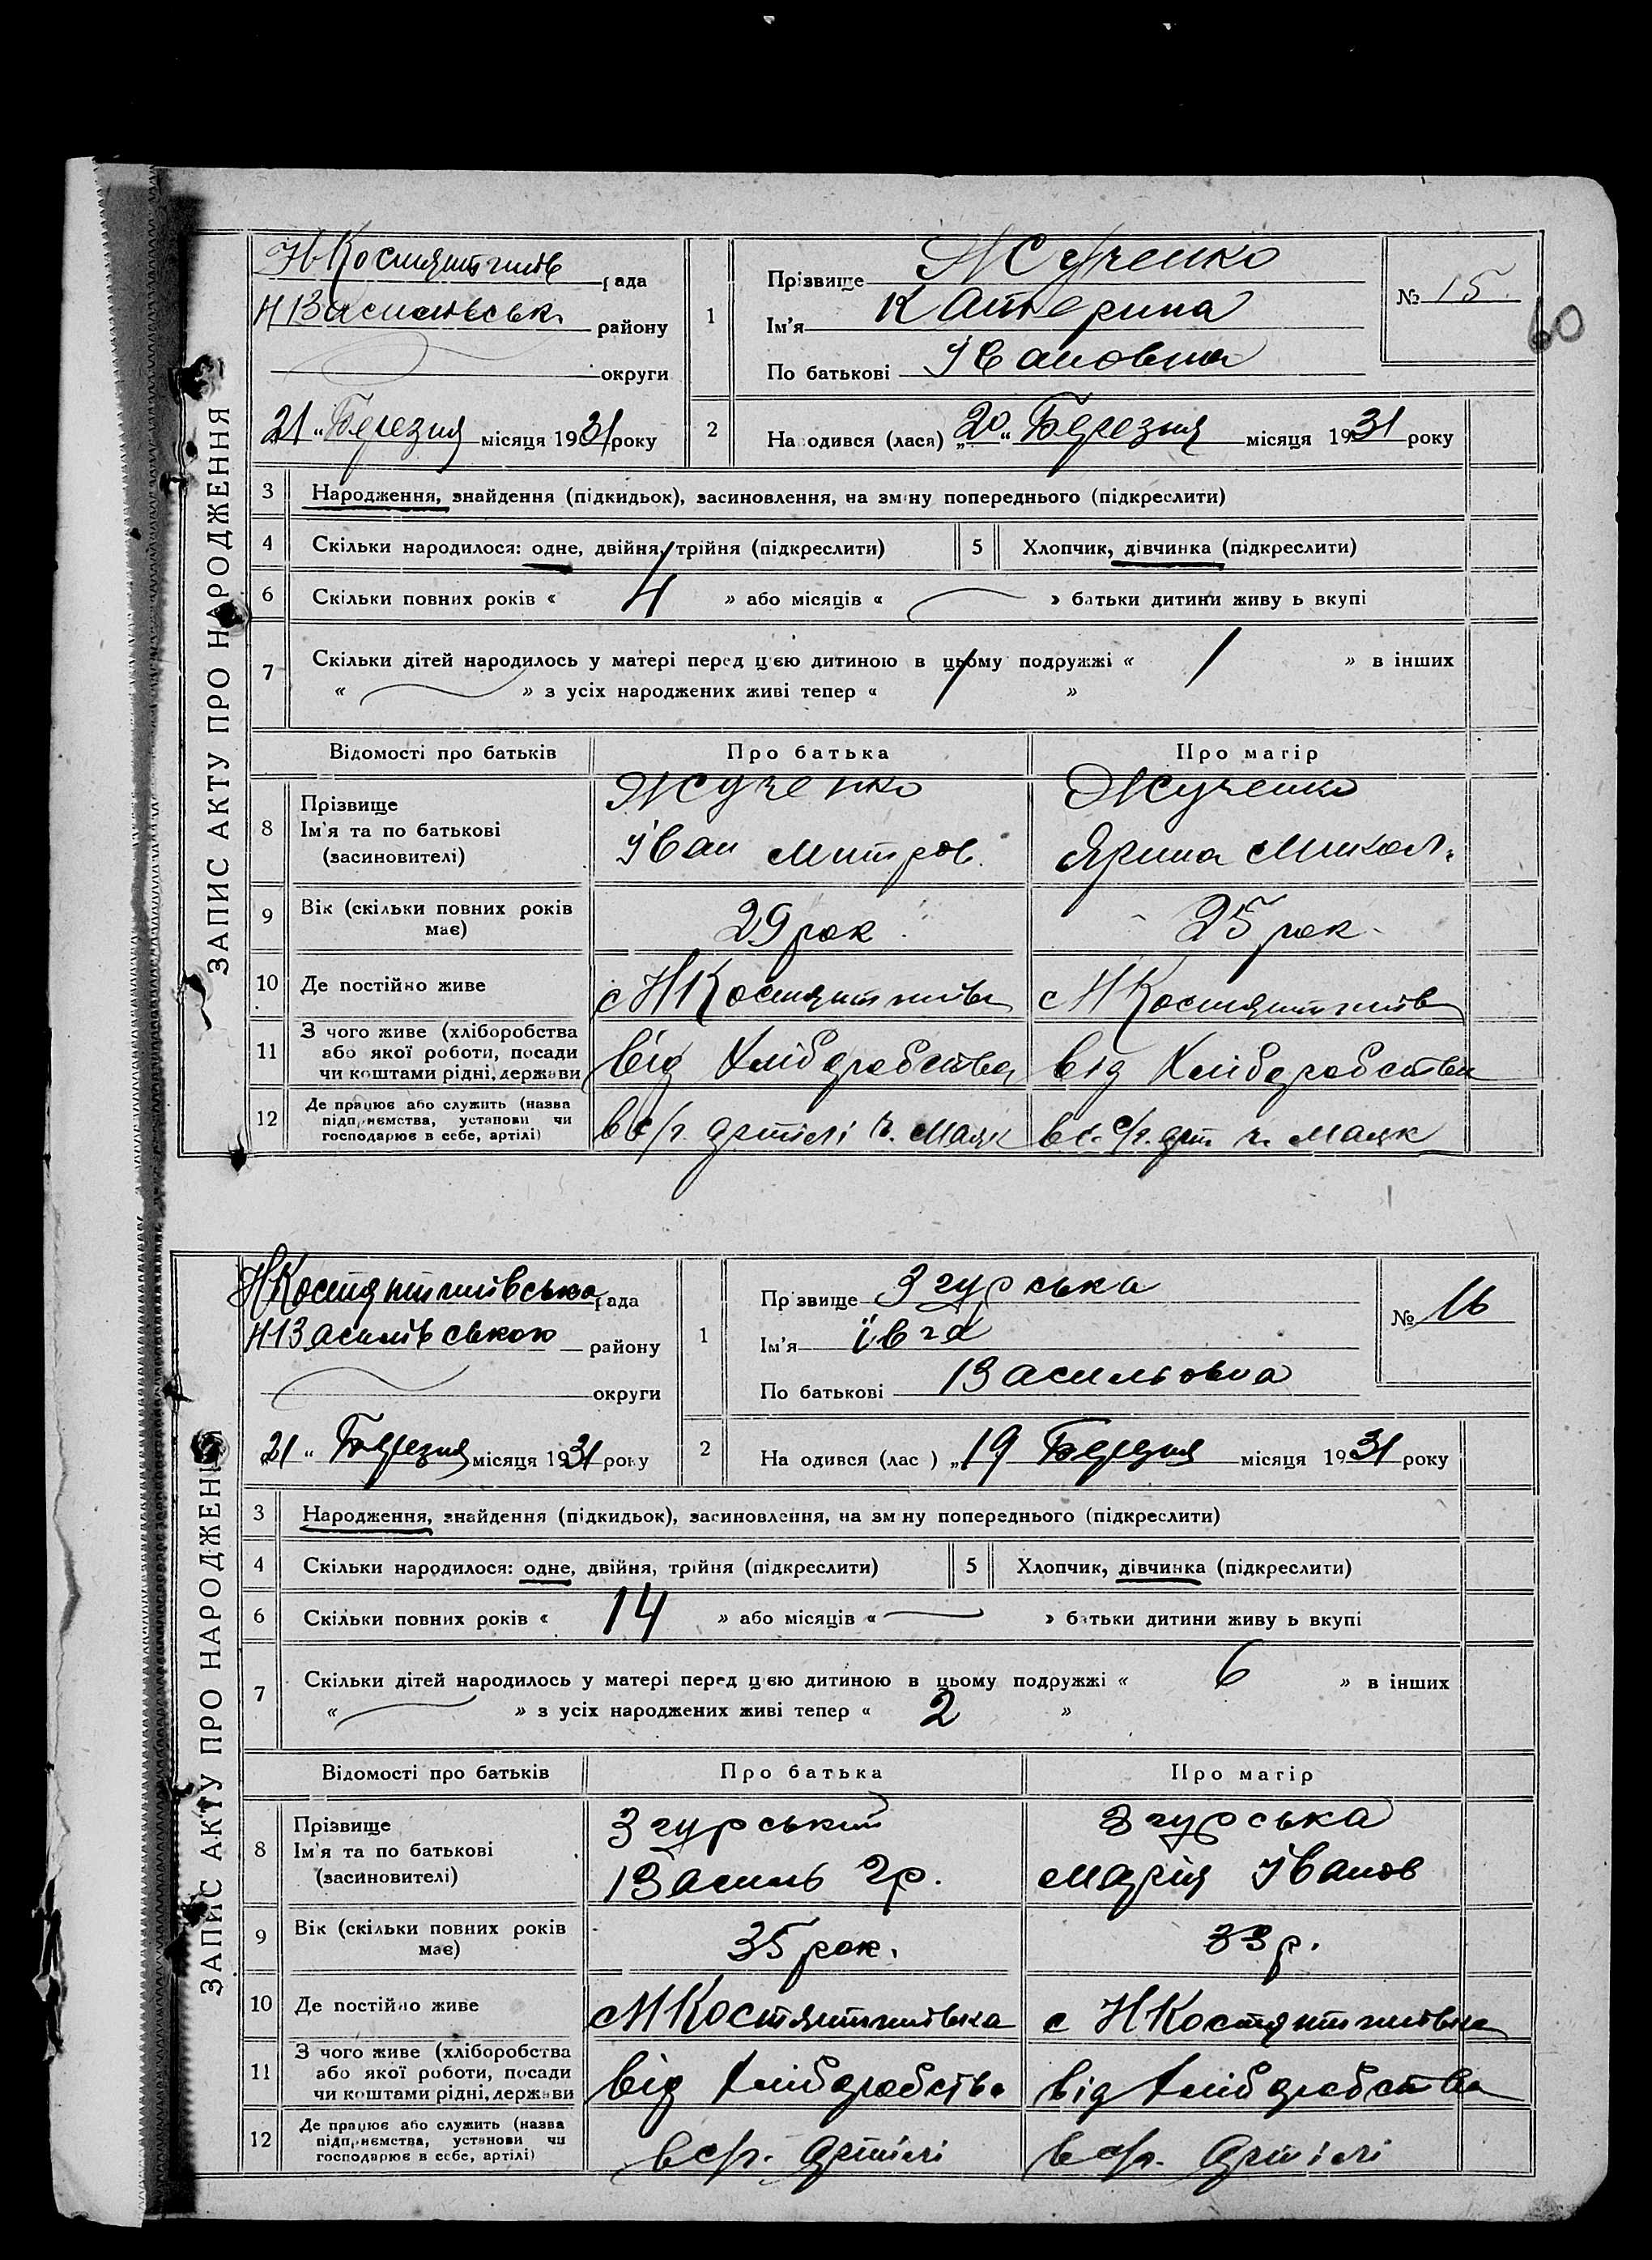 60
ЗАПИС АКТУ ПРО НАРОДЖЕННЯ
НКостянтинів рада
НВасилівськ. району
округи
21 „ Березня місяця 1931 року
1
Прізвище Жученко
Ім'я Катерина
По батькові Івановна
№ 15
2
Народився (лася) „20“ Березня місяця 1931 року
3 Народження, знайдення (підкидьок), засиновлення, на зміну попереднього (підкреслити)
4 Скільки народилося: одне, двійня, трійня (підкреслити)
5 Хлопчик, дівчинка (підкреслити)
6 Скільки повних років « 4 » або місяців « » батьки дитини живуть вкупі
7 Скільки дітей народилось у матері перед цією дитиною в цьому подружжі « 1 » в інших
« » з усіх народжених живі тепер « 1 »
Відомості про батьків
Про батька
Про матір
8 Прізвище
Ім'я та по батькові
(засиновителі)
Жученко
Іван Митров.
Жученко
Ярина Микол.
9 Вік (скільки повних років
має)
29 рок.
25 рок.
10 Де постійно живе
с НКостянтинівка
с НКостянтинівка
11 З чого живе (хліборобства
або якої роботи, посади
чи коштами рідні, держави
від хліборобства
від хліборобства
12 Де працює або служить (назва
підприємства, установи чи
господарює в себе, артілі)
в с/г. артілі Ч. Маяк
в с/г. арт ч. Маяк
ЗАПИС АКТУ ПРО НАРОДЖЕННЯ
НКостянтинівська рада
НВасилівською району
округи
21 „ Березня місяця 1931 року
1
Прізвище Згурська
Ім'я Івга
По батькові Васильовна
№ 16
2
Народився (лася) „19 Березня місяця 1931 року
3 Народження, знайдення (підкидьок), засиновлення, на зміну попереднього (підкреслити)
4 Скільки народилося: одне, двійня, трійня (підкреслити)
5 Хлопчик, дівчинка (підкреслити)
6 Скільки повних років « 14 » або місяців « » батьки дитини живуть вкупі
7 Скільки дітей народилось у матері перед цією дитиною в цьому подружжі « 6 » в інших
« » з усіх народжених живі тепер « 2 »
Відомості про батьків
Про батька
Про матір
8 Прізвище
Ім'я та по батькові
(засиновителі)
Згурський
Василь Гр.
Згурська
Марія Іванов
9 Вік (скільки повних років
має)
35 рок.
33 р.
10 Де постійно живе
с НКостянтинівка
с НКостянтинівка
11 З чого живе (хліборобства
або якої роботи, посади
чи коштами рідні, держави
від хліборобства
від хліборобства
12 Де працює або служить (назва
підприємства, установи чи
господарює в себе, артілі)
в с/г. артілі
в с/г. артілі